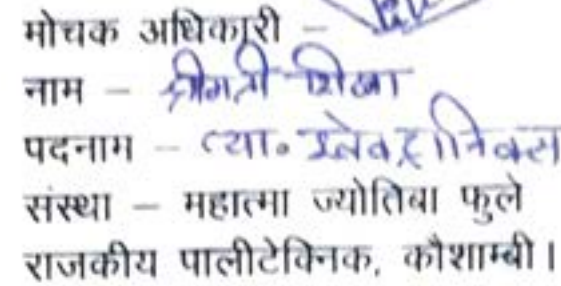 मोचक अधिकारी –
नाम – श्रीमती शिखा
पदनाम – व्या. इलेक्ट्रानिक्स
संस्था – महात्मा ज्योतिबा फुले
राजकीय पालीटेक्निक, कौशाम्बी।